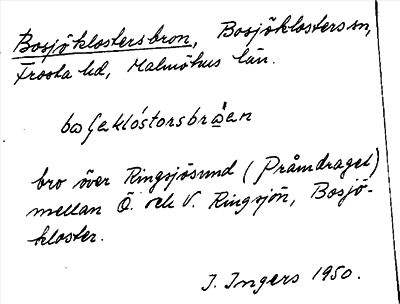 Bosjöklostersbron, Bosjöklosters sn,
Frosta hd, Malmöhus län.
bro över Ringsjösund (Pråmdraget)
mellan Ö. och V. Ringsjön, Bosjö-
kloster.
I. Ingers 1950.